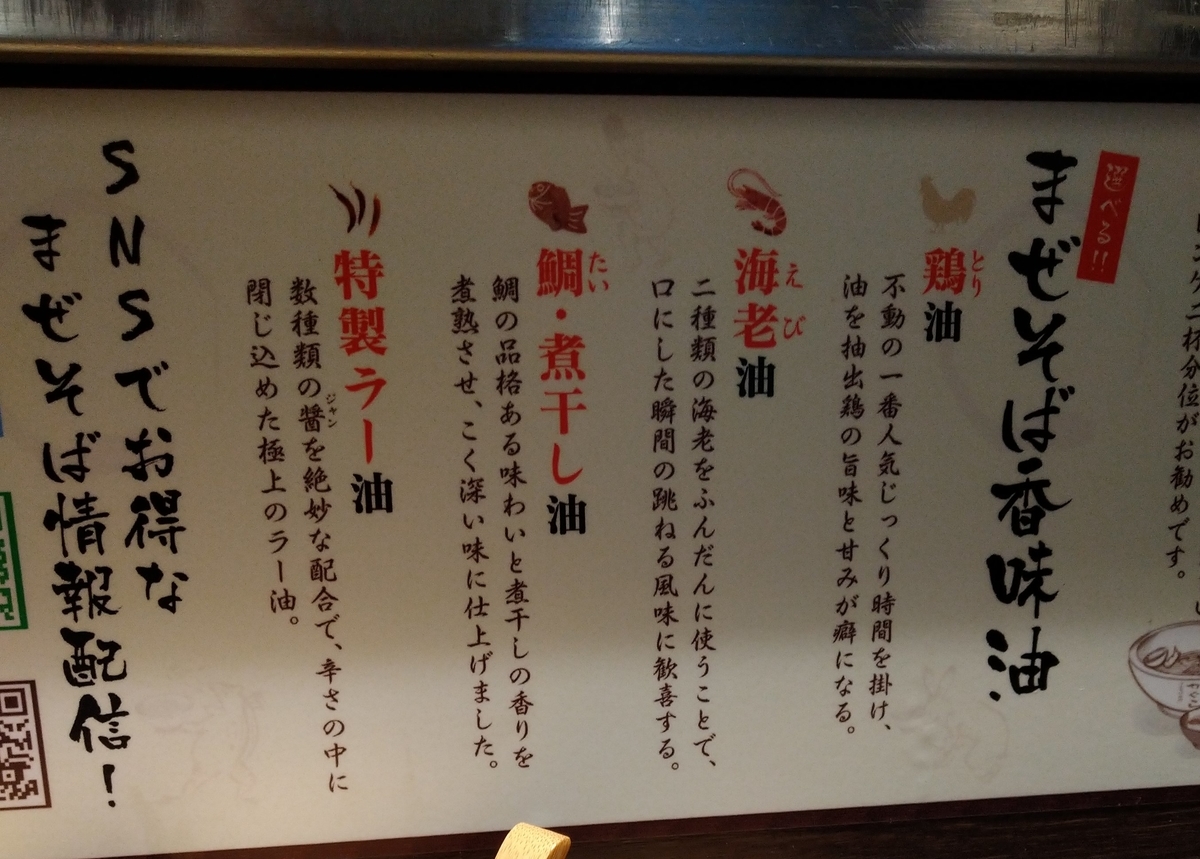 杯分位がお勧めです。
選べる!!
まぜそば香味油
鶏油
とり
不動の一番人気じっくり時間を掛け、
油を抽出鶏の旨味と甘みが癖になる。
海老油
えび
二種類の海老をふんだんに使うことで、
口にした瞬間の跳ねる風味に歓喜する。
鯛・煮干し油
たい
鯛の品格ある味わいと煮干しの香りを
煮熟させ、こく深い味に仕上げました。
特製ラー油
数種類の醤を絶妙な配合で、辛さの中に
ジャン
閉じ込めた極上のラー油。
SNSでお得な
まぜそば情報配信!